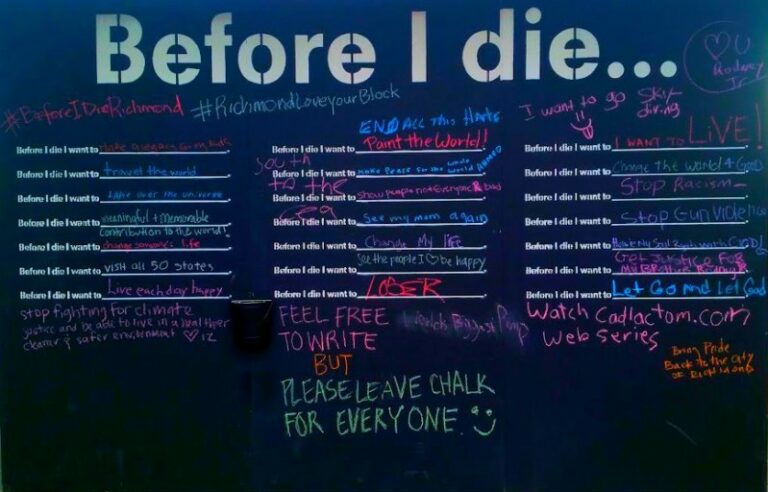 Before I die...
♡ U
Rodney
Jr.
#BeforeIDieRichmond #RichmondLoveyourBlock
Before I die I want to
Before I die I want to travel the world.
Before I die I want to take over the universe
Before I die I want to meaningful + memorable
contribution to the world!
Before I die I want to change someone's life
Before I die I want to visit all 50 states
Before I die I want to Live each day happy
stop fighting for climate
justice and be able to live in a healthier
cleaner & safer environment ♡
END ALL This
Before I die I want to Paint the World!
South
to the
Before I die I want to Make Peace for the whole World
Before I die I want to show people not everyone bad
Before I die I want to See my mom again
Before I die I want to Change My life
Before I die I want to See the people I ♡ be happy
Before I die I want to LOSER
FEEL FREE
TO WRITE
BUT
PLEASE LEAVE CHALK
FOR EVERYONE.
World's Biggest
I want to go sky
diving
Before I die I want to I WANT TO LiVE!
Before I die I want to Change the world 4 Good
Before I die I want to Stop Racism
Before I die I want to Stop Gun Violence
Before I die I want to Have My Soul Right with GOD!
Get Justice FOR
Before I die I want to My Brother Rodney
Before I die I want to Let Go And Let God
Watch Cadlactom.com
Web Series
Bring Pride
Back to the City
of Richmond